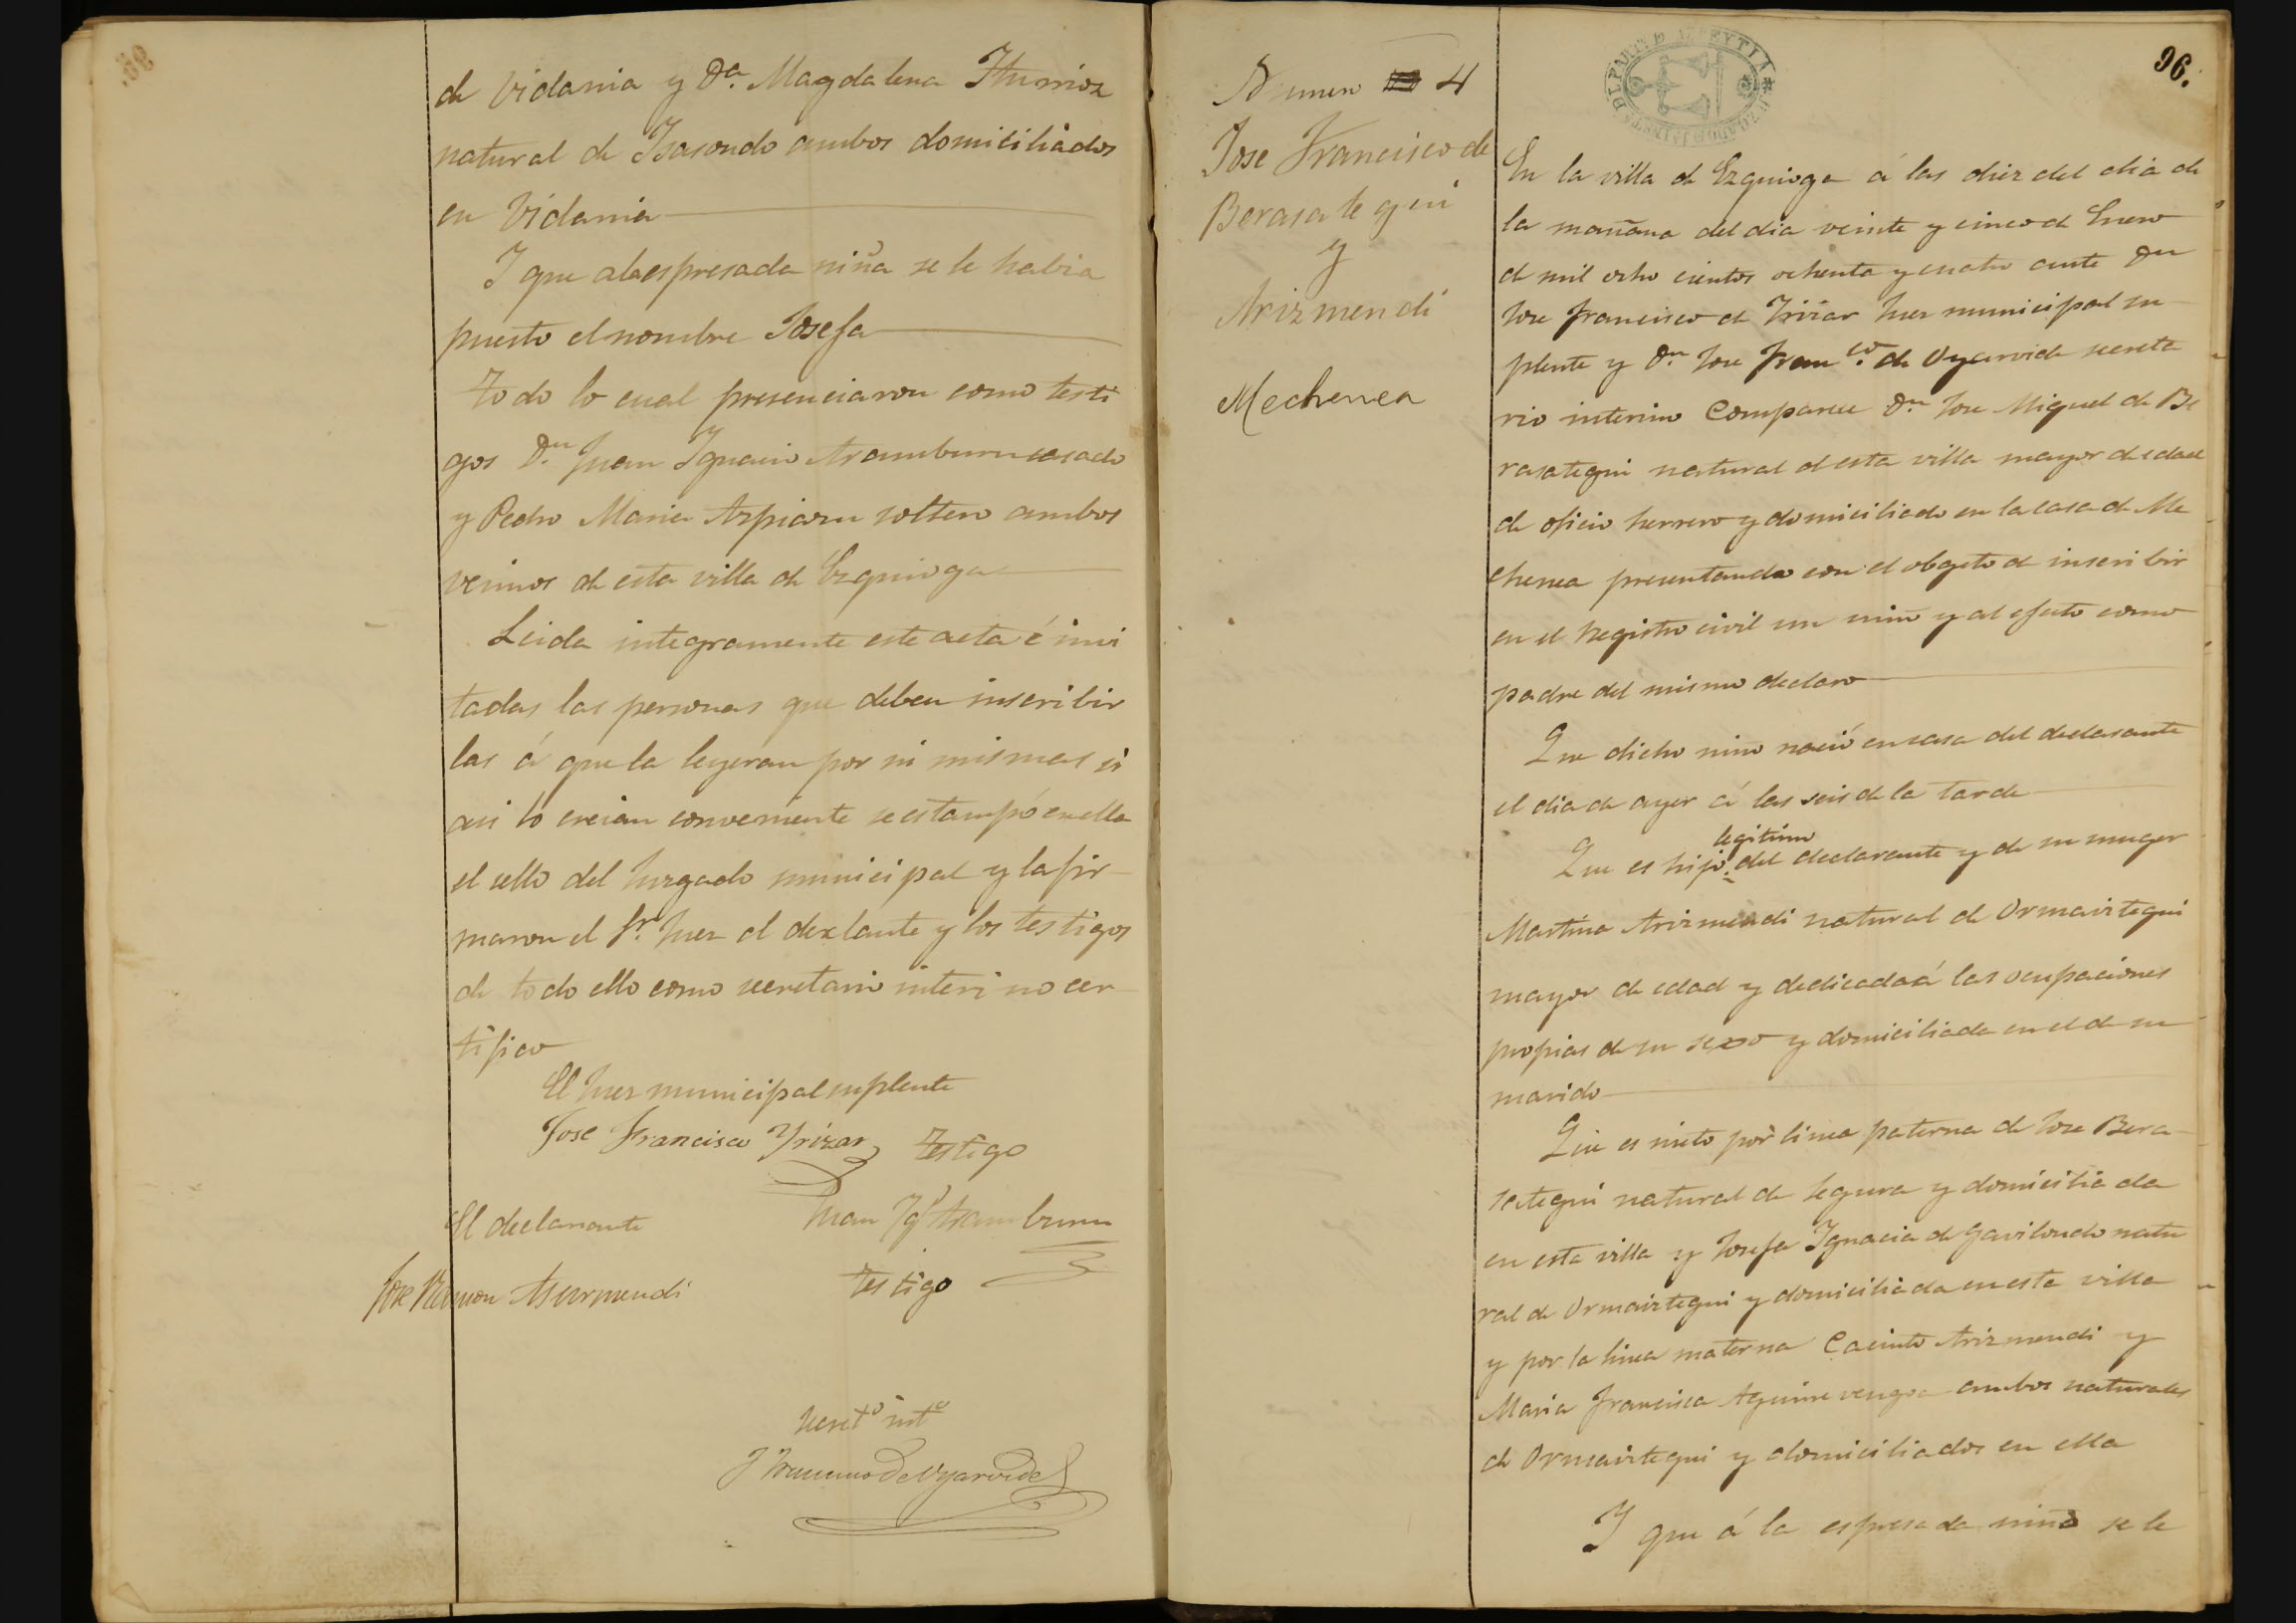 de Vidania y Dª. Magdalena Iturrioz
natural de Isasondo ambos domiciliados
en Vidania
I que alaespresada niña se le habia
puesto el nombre Josefa
Todo lo cual presenciaron como testi
gos Dn. Juan Ignacio Aramburu casado
y Pedro Maria Aspiazu soltero ambos
vecinos de esta villa de Ezquioga
Leida integramente este acta é invi
tadas las personas que deben inscribir
las á que la leyeran por si mismas si
asi lo creian conveniente se estampó en ella
el sello del Juzgado municipal y la fir
maron el Sr. Juez el dexlante y los testigos
de todo ello como secretario interino cer
tifico
El Juez municipal suplente
Jose Francisco Yrizar
Testigo
El declarante
Juan Igº Aramburu
Jose Ramon Asurmendi
Testigo
Secretº intº
J Francisco de Oyarvide
Numero 4
Jose Francisco de
Berasategui
y
Arizmendi
Mechenea
96.
En la villa de Ezquioga á las diez del dia de
la mañana del dia veinte y cinco de Enero
de mil ocho cientos ochenta y cuatro ante Dn
Jose Francisco de Irizar Juez municipal su
plente y Dn. Jose Franco. de Oyarvide secreta
rio interino Comparece Dn Jose Miguel de Be
rasategui natural de esta villa mayor de edad
de oficio herrero y domiciliado en la casa de Me
chenea presentando con el obgeto de inscribir
en el registro civil un niño y al efecto como
padre del mismo declaro
Que dicho niño nació en casa del declarante
el dia de ayer á las seis de la tarde
legitimo
Que es hijo del declarante y de su muger
Martina Arizmendi natural de Ormaiztegui
mayor de edad y dedicada á las ocupaciones
propias de su sexo y domiciliada en el de su
marido
Que es nieto por linea paterna de Jose Bera
sategui natural de Segura y domiciliada
en esta villa y Josefa Ignacia de Gavilondo natu
ral de Ormaiztegui y domiciliada en esta villa
y por la linea materna Cacinto Arizmendi y
Maria Francisca Aguirrevengoa ambos naturales
de Ormaiztegui y domiciliados en ella
I que á la espresada niño se le